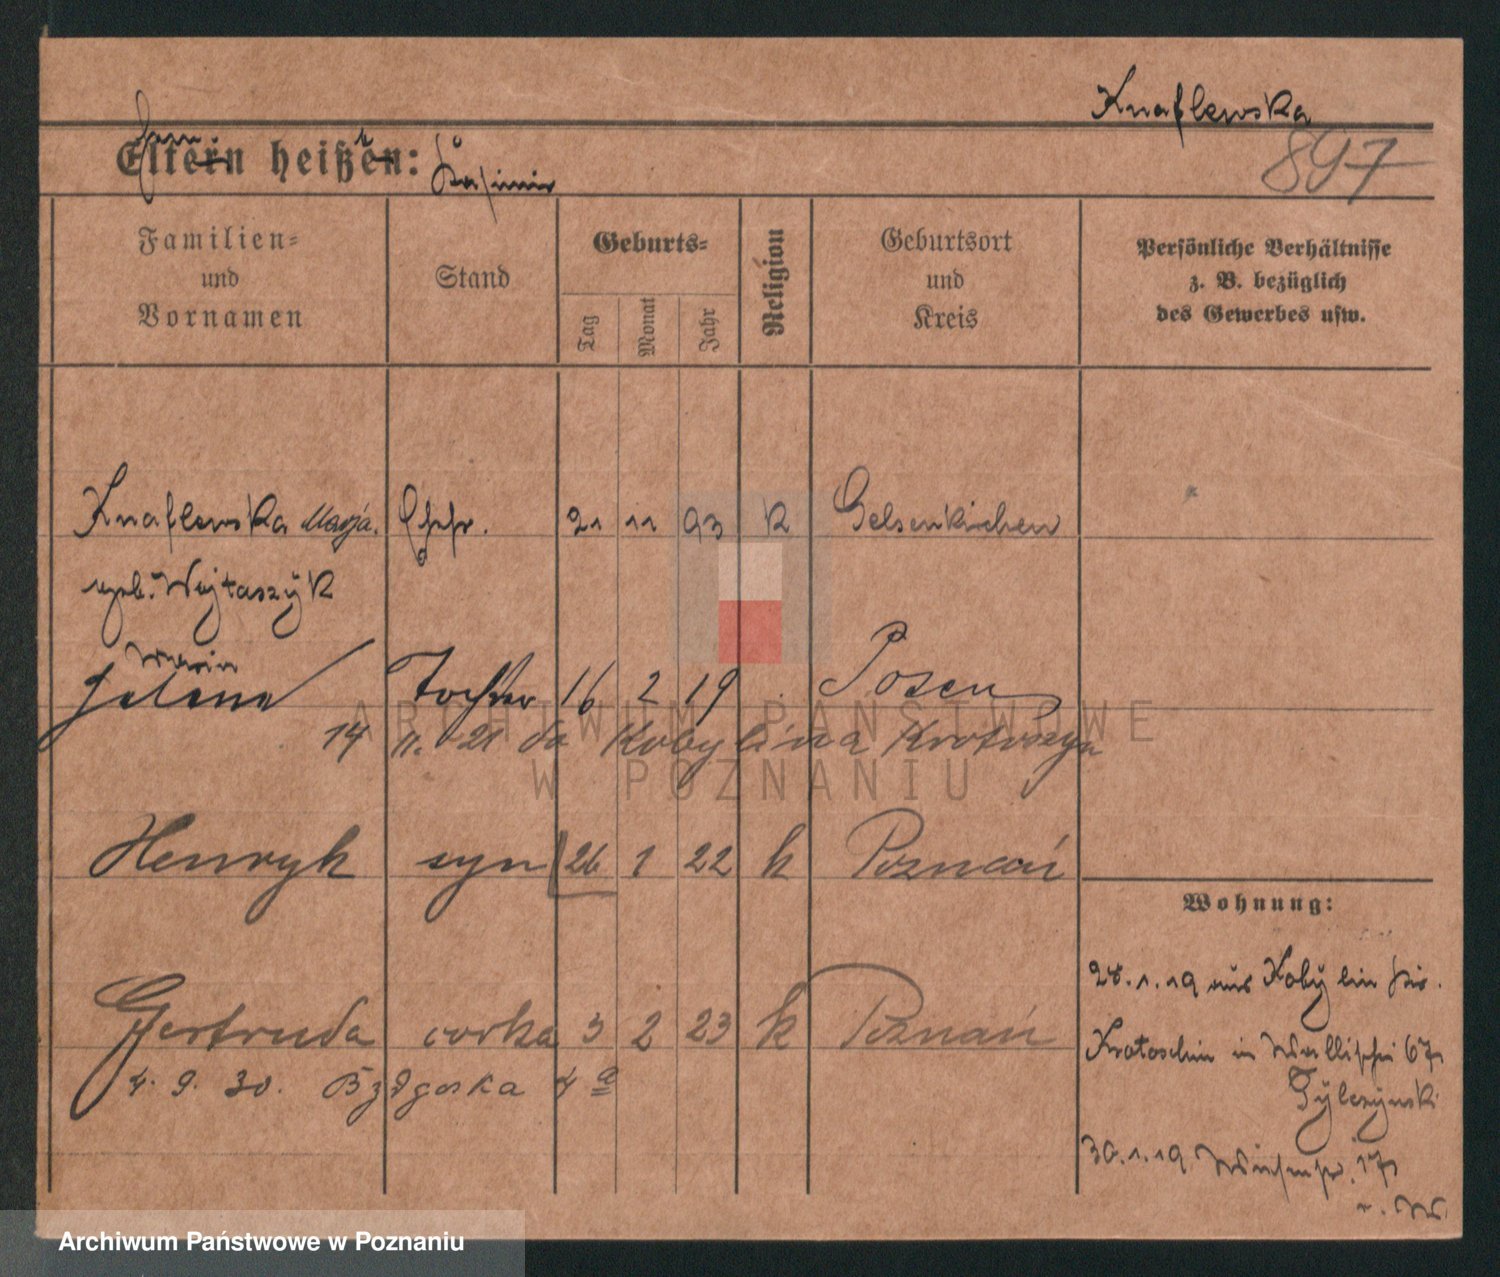 Knaflewska
897
Eltern heißen: Kasimir
Familien= und Vornamen
Stand
Geburts=
Tag
Monat
Jahr
Religion
Geburtsort und Kreis
Persönliche Verhältnisse
z. B. bezüglich
des Gewerbes usw.
Knaflewska Marja. Ehefr. 21 11 93 K Gelsenkirchen
geb. Wojtaszyk
Maria
Helene Tochter 16 2 19 Posen
14 11. 21 do Kobylina Krotoszyn
Henryk syn 26 1 22 k Poznań
Wohnung:
28.1.19 aus Kobylin Kr.
Gertruda corka 3 2 23 k Poznań
Krotoschin in Wallischei 67
4. 9. 30. Bydgoska 4a
Tylczynski
30.1.19 17
ARCHIWUM PAŃSTWOWE
W POZNANIU
Archiwum Państwowe w Poznaniu